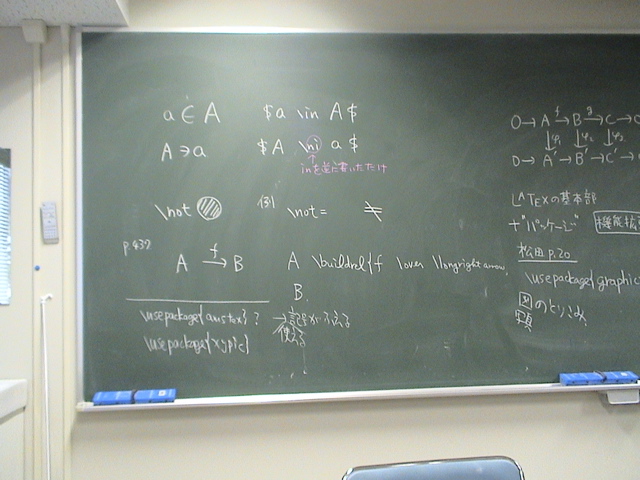 a ∈ A $a \in A$
A ∋ a $A \ni a$
inを逆に書いただけ
\not (例) \not= ≠
p.437
A f→ B A \buildrel{f \over \longrightarrow}
B
\usepackage{amstex}?
→記号が
使える
\usepackage{xypic}
0→A f→B g→C→
↓φ₁ ↓φ₂ ↓φ₃
0→A'→B'→C'→
LATEXの基本部
+"パッケージ" 機能拡
松田 p.20
\usepackage{graphic
図のとりこみ